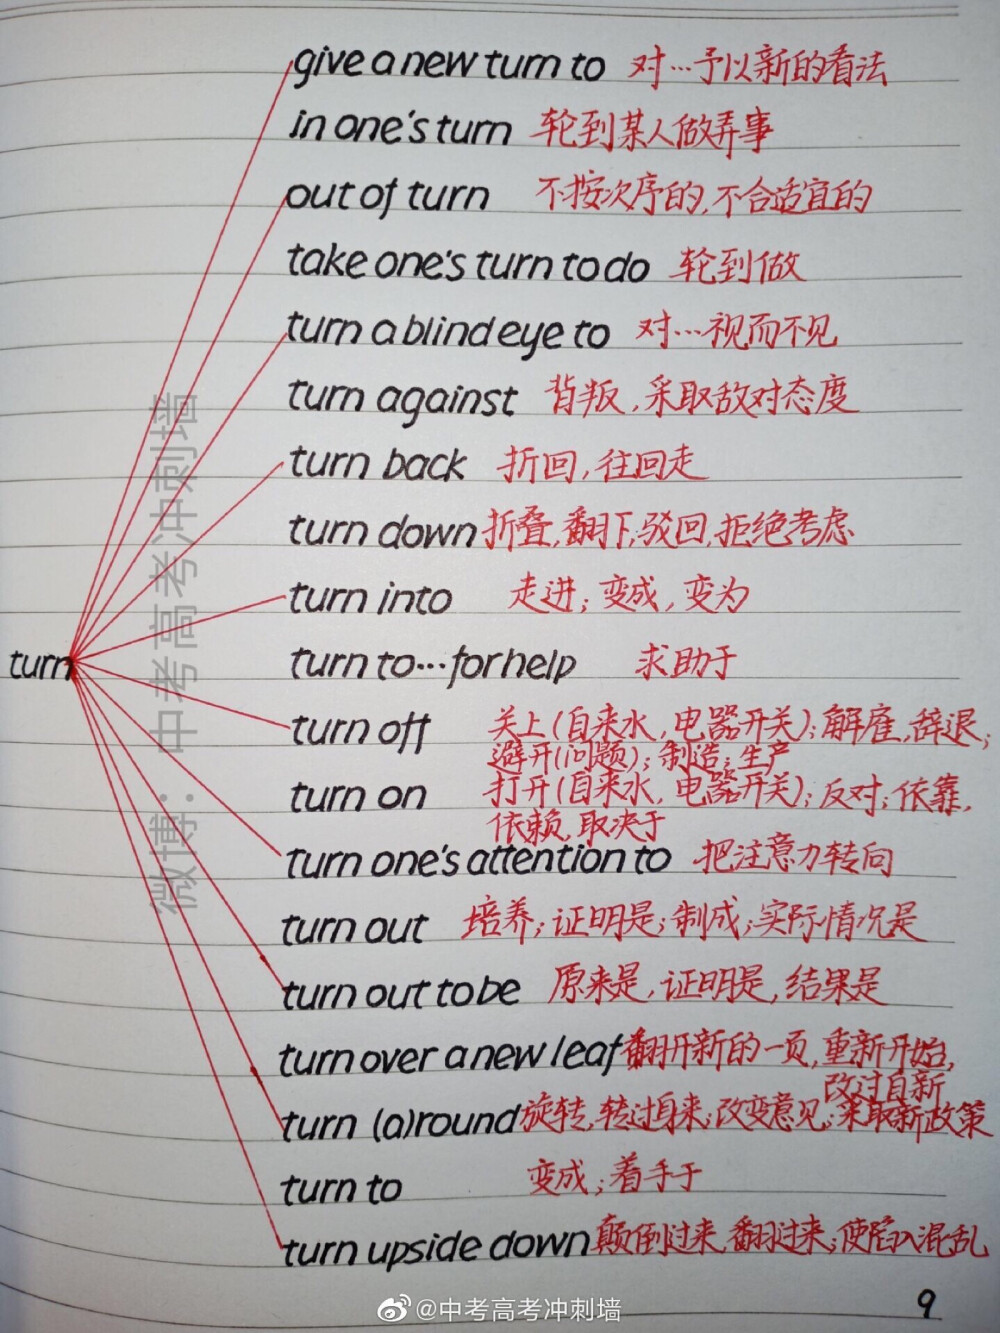 give a new turn to 对…予以新的看法
in one's turn 轮到某人做弄事
out of turn 不按次序的,不合适宜的
take one's turn to do 轮到做
turn a blind eye to 对…视而不见
turn against 背叛,采取敌对态度
turn back 折回,往回走
turn down 折叠,翻下,驳回,拒绝考虑
turn into 走进;变成,变为
turn
turn to…for help 求助于
turn off 关上(自来水,电器开关);解雇,辞退;
避开(问题);制造;生产
turn on 打开(自来水,电器开关);反对;依靠,
依赖,取决于
turn one's attention to 把注意力转向
turn out 培养;证明是;制成;实际情况是
turn out to be 原来是,证明是,结果是
turn over a new leaf 翻开新的一页,重新开始,
改过自新
turn (a)round 旋转,转过身来;改变意见;采取新政策
turn to 变成;着手于
turn upside down 颠倒过来,翻过来;使陷入混乱
微博:中考高考冲刺墙
@中考高考冲刺墙
9